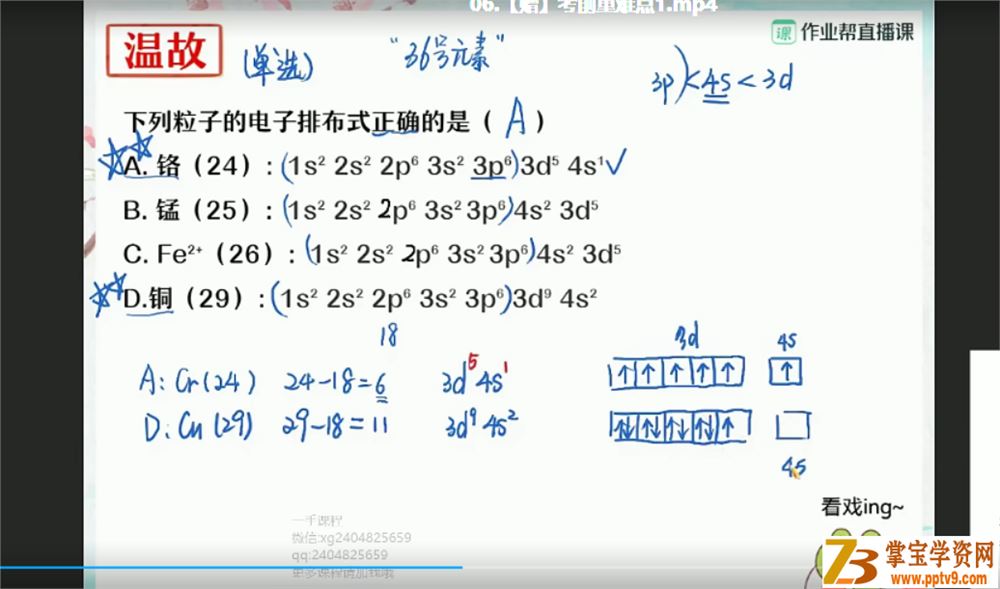 06.【赠】考前重难点1.mp4
温故
(单选)
"36号元素"
课 作业帮直播课
3p)<4s<3d
下列粒子的电子排布式正确的是（ A ）
A. 铬（24）: (1s² 2s² 2p⁶ 3s² 3p⁶)3d⁵ 4s¹✓
B. 锰（25）: (1s² 2s² 2p⁶ 3s² 3p⁶)4s² 3d⁵
C. Fe²⁺（26）: (1s² 2s² 2p⁶ 3s² 3p⁶)4s² 3d⁵
D.铜（29）: (1s² 2s² 2p⁶ 3s² 3p⁶)3d⁹ 4s²
18
3d 4s
A: Cr(24) 24-18=6 3d⁵4s¹ ↑ ↑ ↑ ↑ ↑ ↑
D: Cu(29) 29-18=11 3d⁹4s² ↑↓ ↑↓ ↑↓ ↑↓ ↑
4s
看戏ing~
一手课程
微信:xg2404825659
qq:2404825659
更多课程请加我哦
掌宝学资网
www.pptv9.com